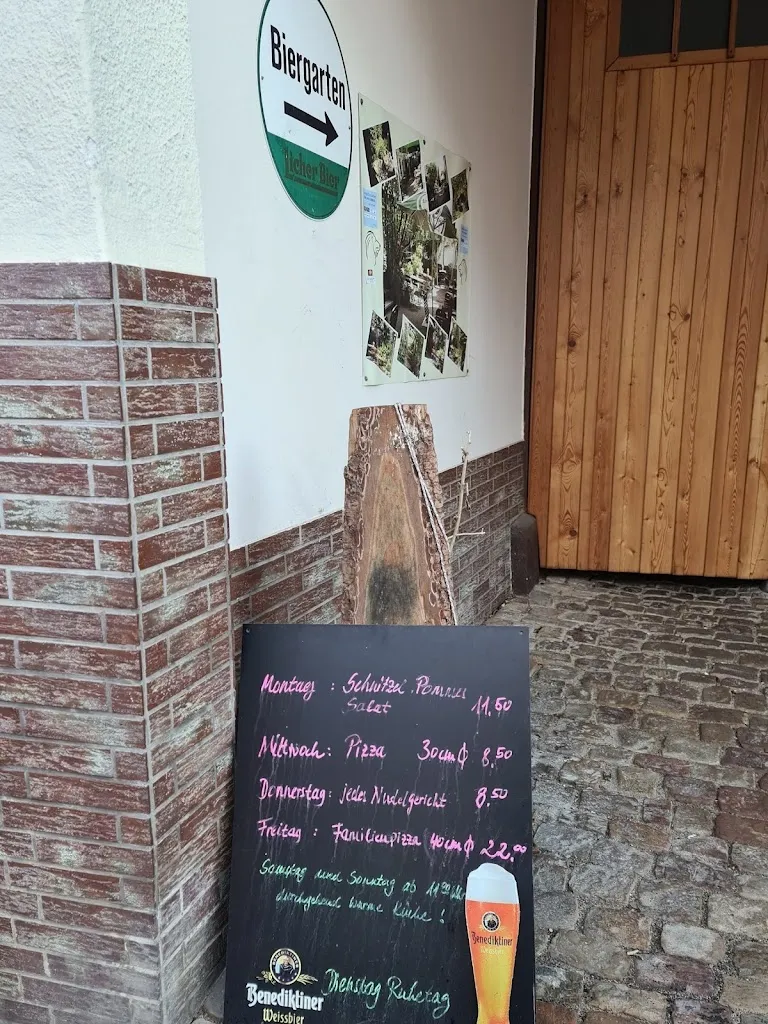 Biergarten
Licher Bier
Montags : Schnitzel Pommes
Salat 11.50
Mittwoch: Pizza 30cm ϕ 8.50
Donnerstag: jedes Nudelgericht 8.50
Freitag : Familienpizza 40cm ϕ 22.00
Samstag und Sonntag ab 11.00 Uhr
durchgehend warme Küche !
Benediktiner
Benediktiner
Weissbier
Dienstag Ruhetag